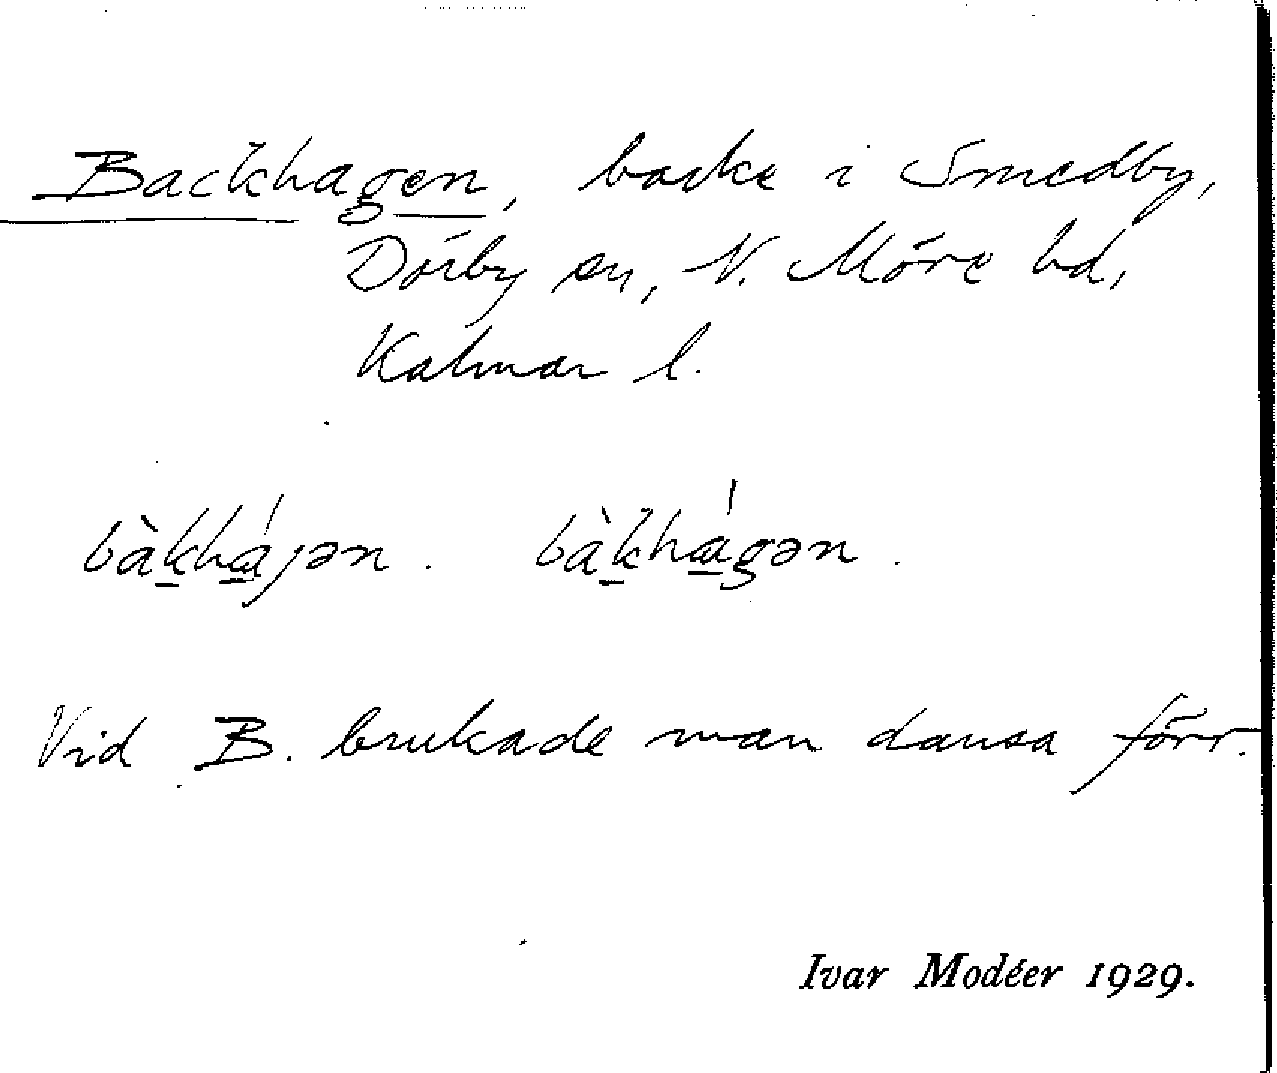 Backhagen, backe i Smedby,
Dörby sn, N. Möre hd,
Kalmar l.
bàkhájən. bàkhágən.
Vid B. brukade man dansa förr.
Ivar Modéer 1929.